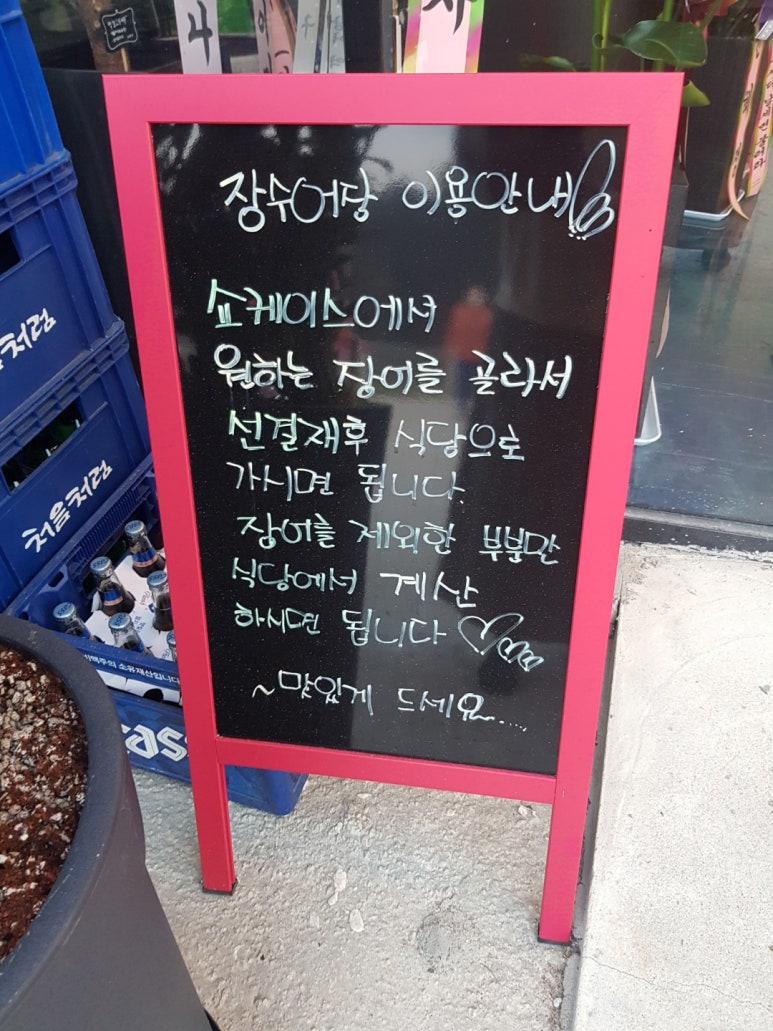 장수어당 이용안내
쇼케이스에서
원하는 장어를 골라서
선결재후 식당으로
가시면 됩니다
장어를 제외한 부분만
식당에서 계산
하시면 됩니다
~맛있게 드세요.....
처음처럼
처음처럼
맥주의 소유재산입니다